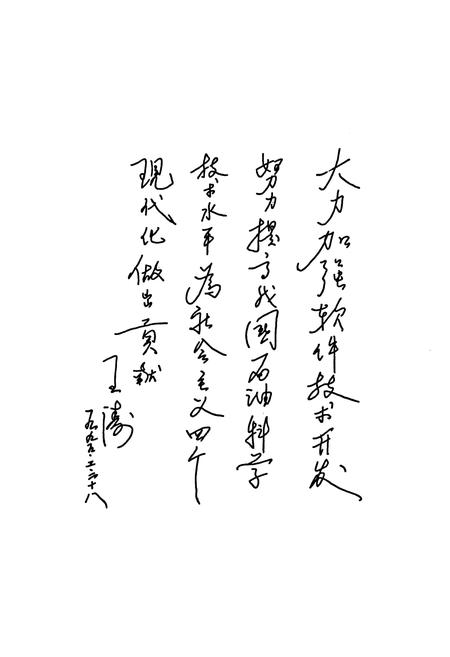 大力加强软件技术开发
努力提高我國石油科学
技术水平為社会主义四个
现代化做出贡献
王濤
一九九〇.二.二十八